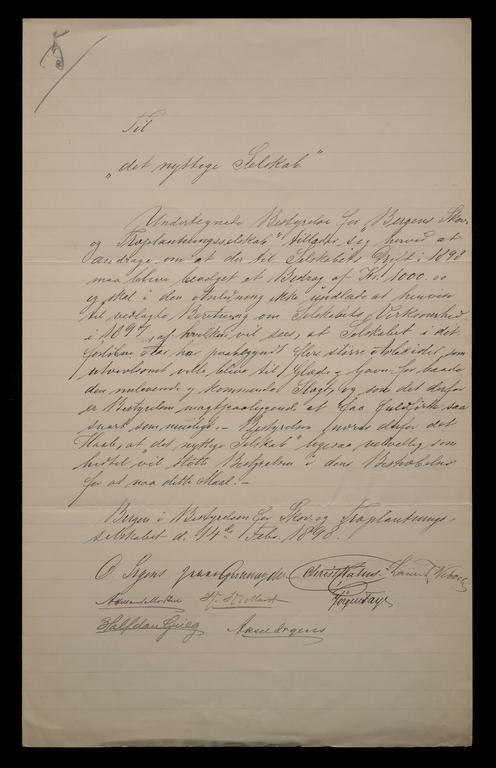 5
Til
"det nyttige Selskab"
Undertegnede Bestyrelse for "Bergens Skov-
og Træplantningsselskab" tillader sig herved at
andrage om at der til Selskabets Drift i 1898
maa blive bevilget et Bidrag af Kr. 1000.00
og skal i den Anledning ikke undlade at henvise
til vedlagte Beretning om Selskabets Virksomhed
i 1897, af hvilken vil sees, at Selskabet i det
forløbne Aar har paabegyndt flere større Arbeider, som
utvivlsomt ville blive til Glæde og Gavn for baade
den nulevende og kommende Slægt, og som det derfor
er Bestyrelsen magtpaaliggende at faa fuldført saa
snart som muligt. - Bestyrelsen nærer derfor det
Haab, at "det nyttige Selskab" ligesaa velvillig som
hidtil vil støtte Bestyrelsen i dens Bestræbelser
for at naa dette Maal. -
Bergen i Bestyrelsen for Skov og Træplantnings-
selskabet d. 14de Febr. 1898.
O. Irgens Grunander
Jørgen Faye
Halfdan Grieg Aksel Irgens